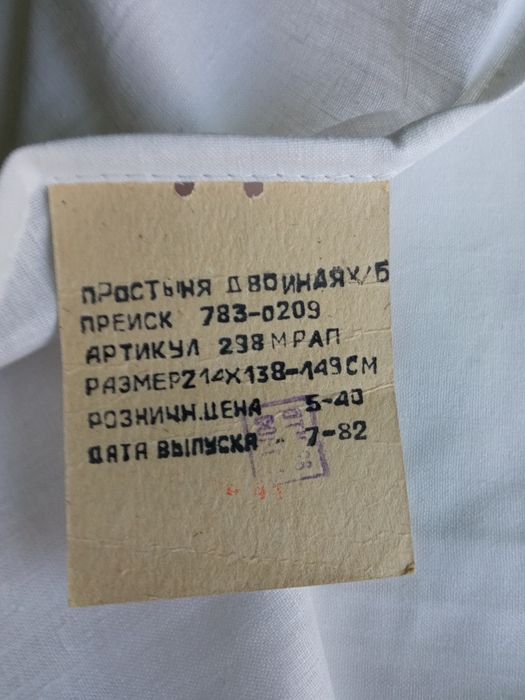 ПРОСТЫНЯ ДВОИНАЯ Х/Б
ПРЕИСК 783-0209
АРТИКУЛ 298 МРАП
РАЗМЕР 214Х138-149СМ
РОЗНИЧН.ЦЕНА 5-40
ДАТА ВЫПУСКА - 7-82